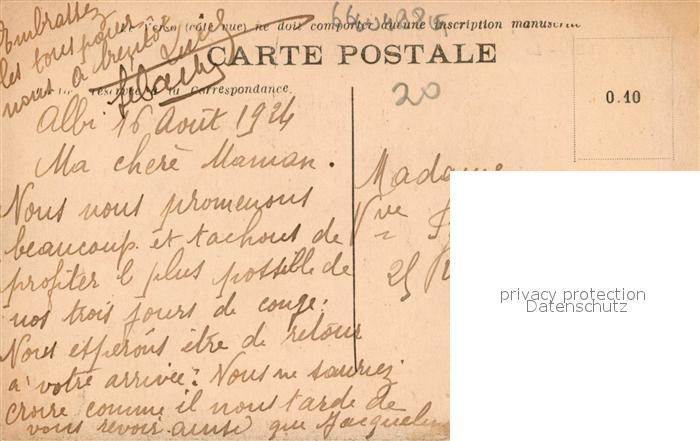 Embrassez
les tous pour
nous à bientôt
Le Verso (côté vue) ne doit comporter aucune inscription manuscrite
CARTE POSTALE
réservée à la Correspondance.
20
0.10
Albi 16 Août 1924
Ma cherè Maman.
Nous nous promenons
beaucoup et tachons de
profiter l plus possible de
nos trois jours de congé.
Nous esperons être de retour
a votre arrivée. Nous ne sauriez
croire comme il nous tarde de
vous revoir ainsi que Jacqueline
Madame
Vve
25
privacy protection
Datenschutz